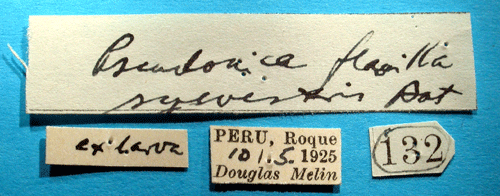 Pseudonica flavilla
sylvestris Bat
ex larva
PERU, Roque
10/.5. 1925
Douglas Melin
132